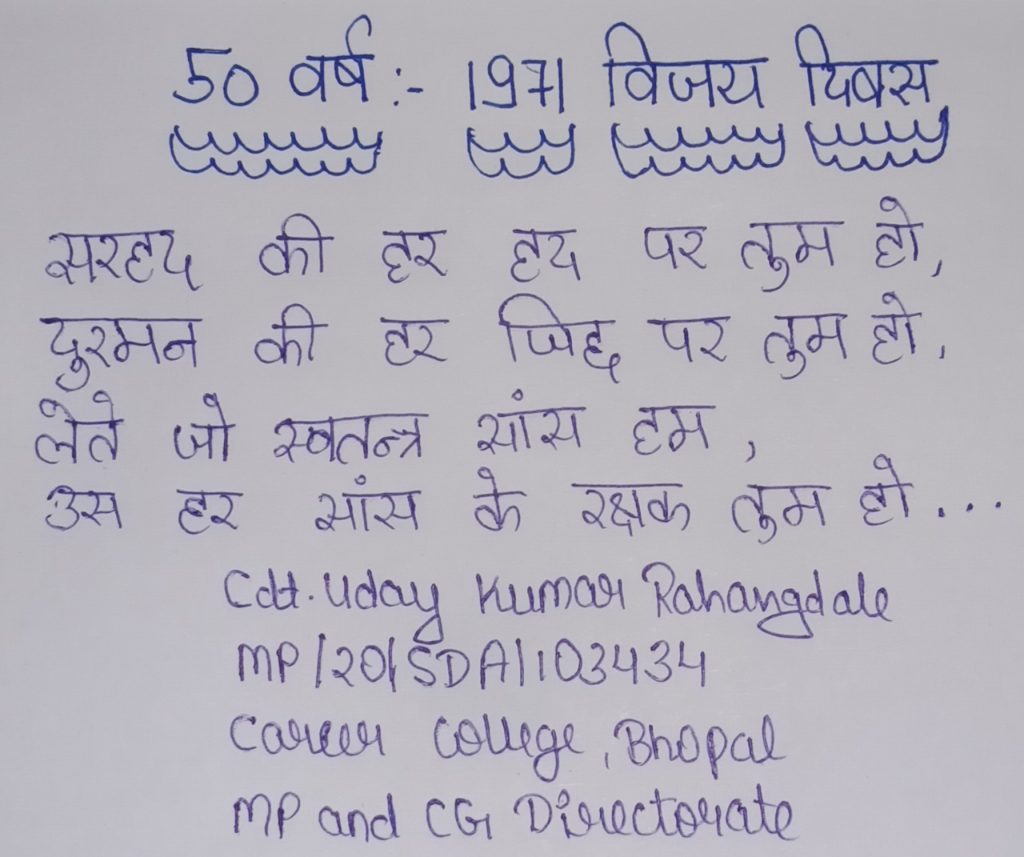 50 वर्ष :- 1971 विजय दिवस
सरहद की हर हद पर तुम हो,
दुश्मन की हर जिद्द पर तुम हो,
लेते जो स्वतन्त्र सांस हम,
उस हर सांस के रक्षक तुम हो...
Cdt. Uday Kumar Rahangdale
MP/20/SDA/103434
Career College, Bhopal
MP and CG Directorate